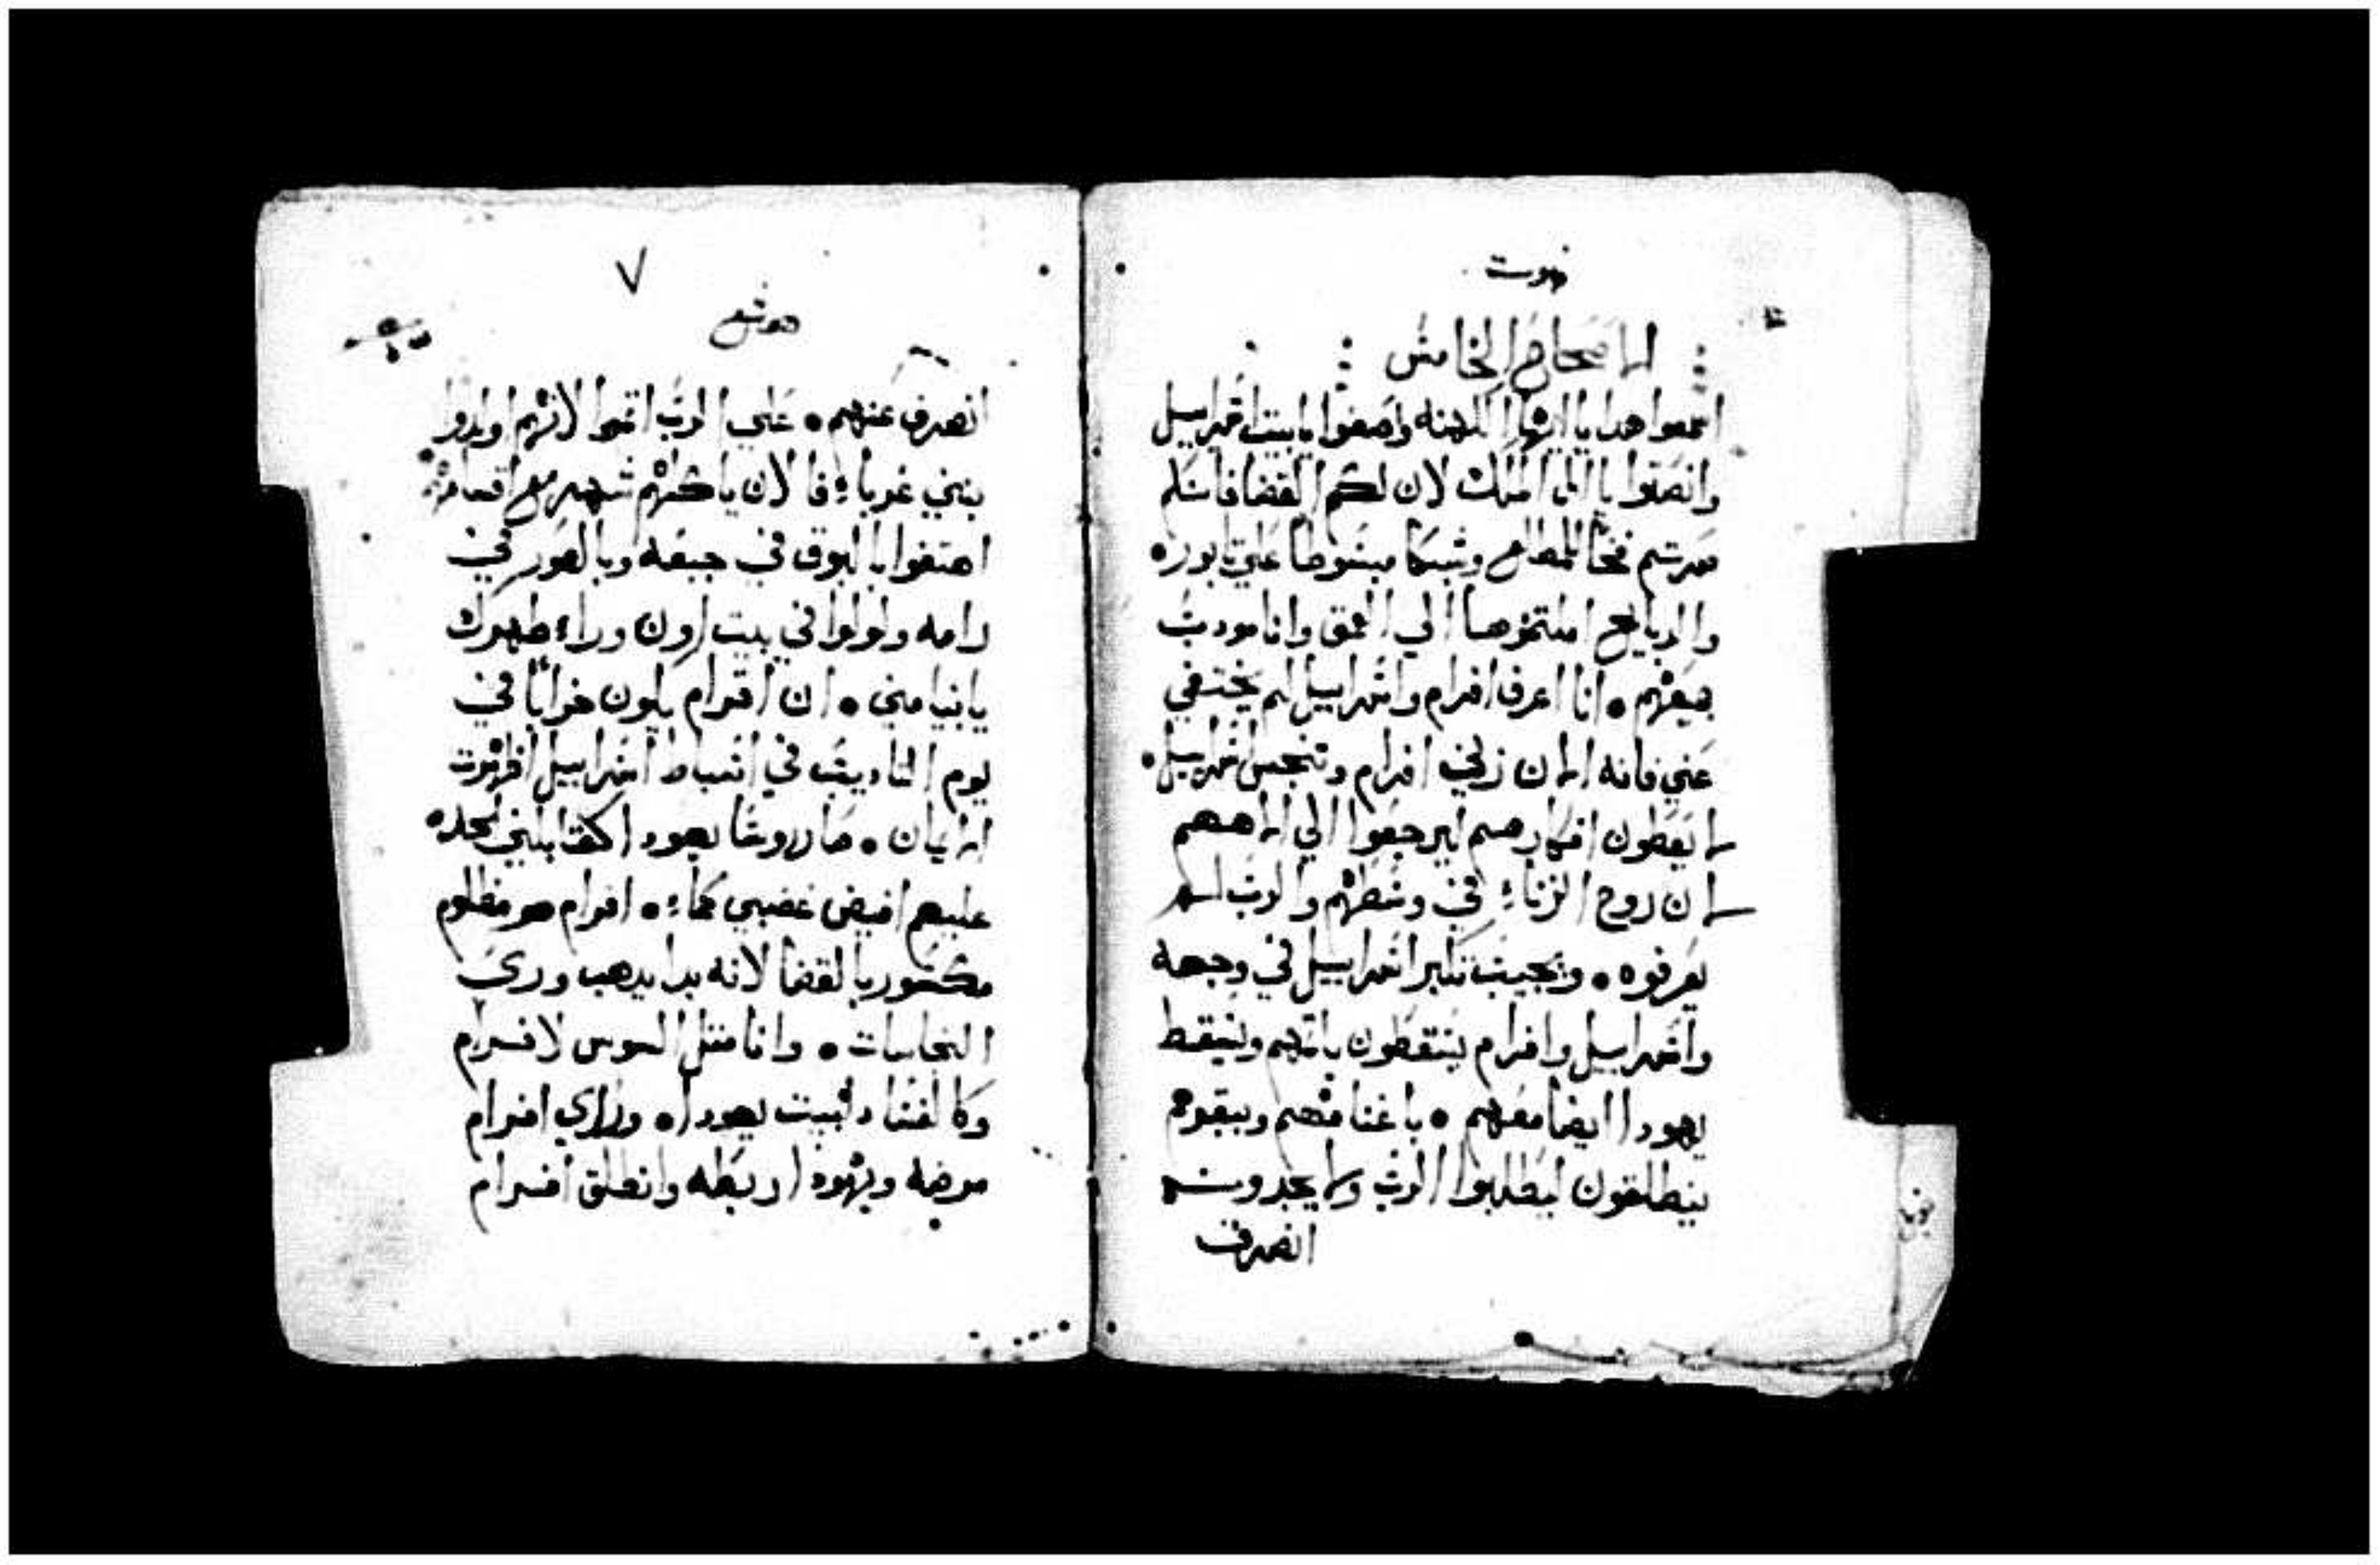 نبوت
الاصحاح الخامس
اسمعوا هدا يا ايها الكهنه واصغوا يا بيت اسراييل
وانصتوا يا ال الملك لان لكم القضا فانكم
صرتم فخا للمطلع وشبكا مبسوطا علي تابور •
والدبايح املتموها الي العمق وانا مودب
جميعهم • انا اعرف افرام واسراييل لم يختفي
عني فانه الان زني افرام وتنجس اسراييل •
لا يعطون افكارهم ليرجعوا الي الاههم
لان روح الزناء في وسطهم والرب لم
يعرفوه • ويجيب تكبر اسراييل في وجهه
واسراييل وافرام يسقطون باثمهم ويسقط
يهودا ايضا معهم • باغنامهم وبقرهم
ينطلقون ليطلبوا الرب ولا يجدونه
انصرف
٧
هوشع
انصرف عنهم • علي الرب اثموا لانهم اولدوا
بني غرباء فالان ياكلهم شهر مع اقسامهم
اهتفوا بالبوق في جبعه وبالصور في
رامه ولولوا في بيت اون وراء ظهرك
يا بنيامين • ان افرام يكون خرابا في
يوم التاديب في اسباط اسراييل اظهرت
الايمان • صار روسا يهودا كقابلين الحد •
عليهم افيض غضبي كماء • افرام هو مظلوم
مكسور بالقضا لانه بدا يدهب وري
النجاسات • وانا مثل السوس لافرام
وكالفساد لبيت يهودا • وراي افرام
مرضه ويهودا ربطه وانطلق افرام